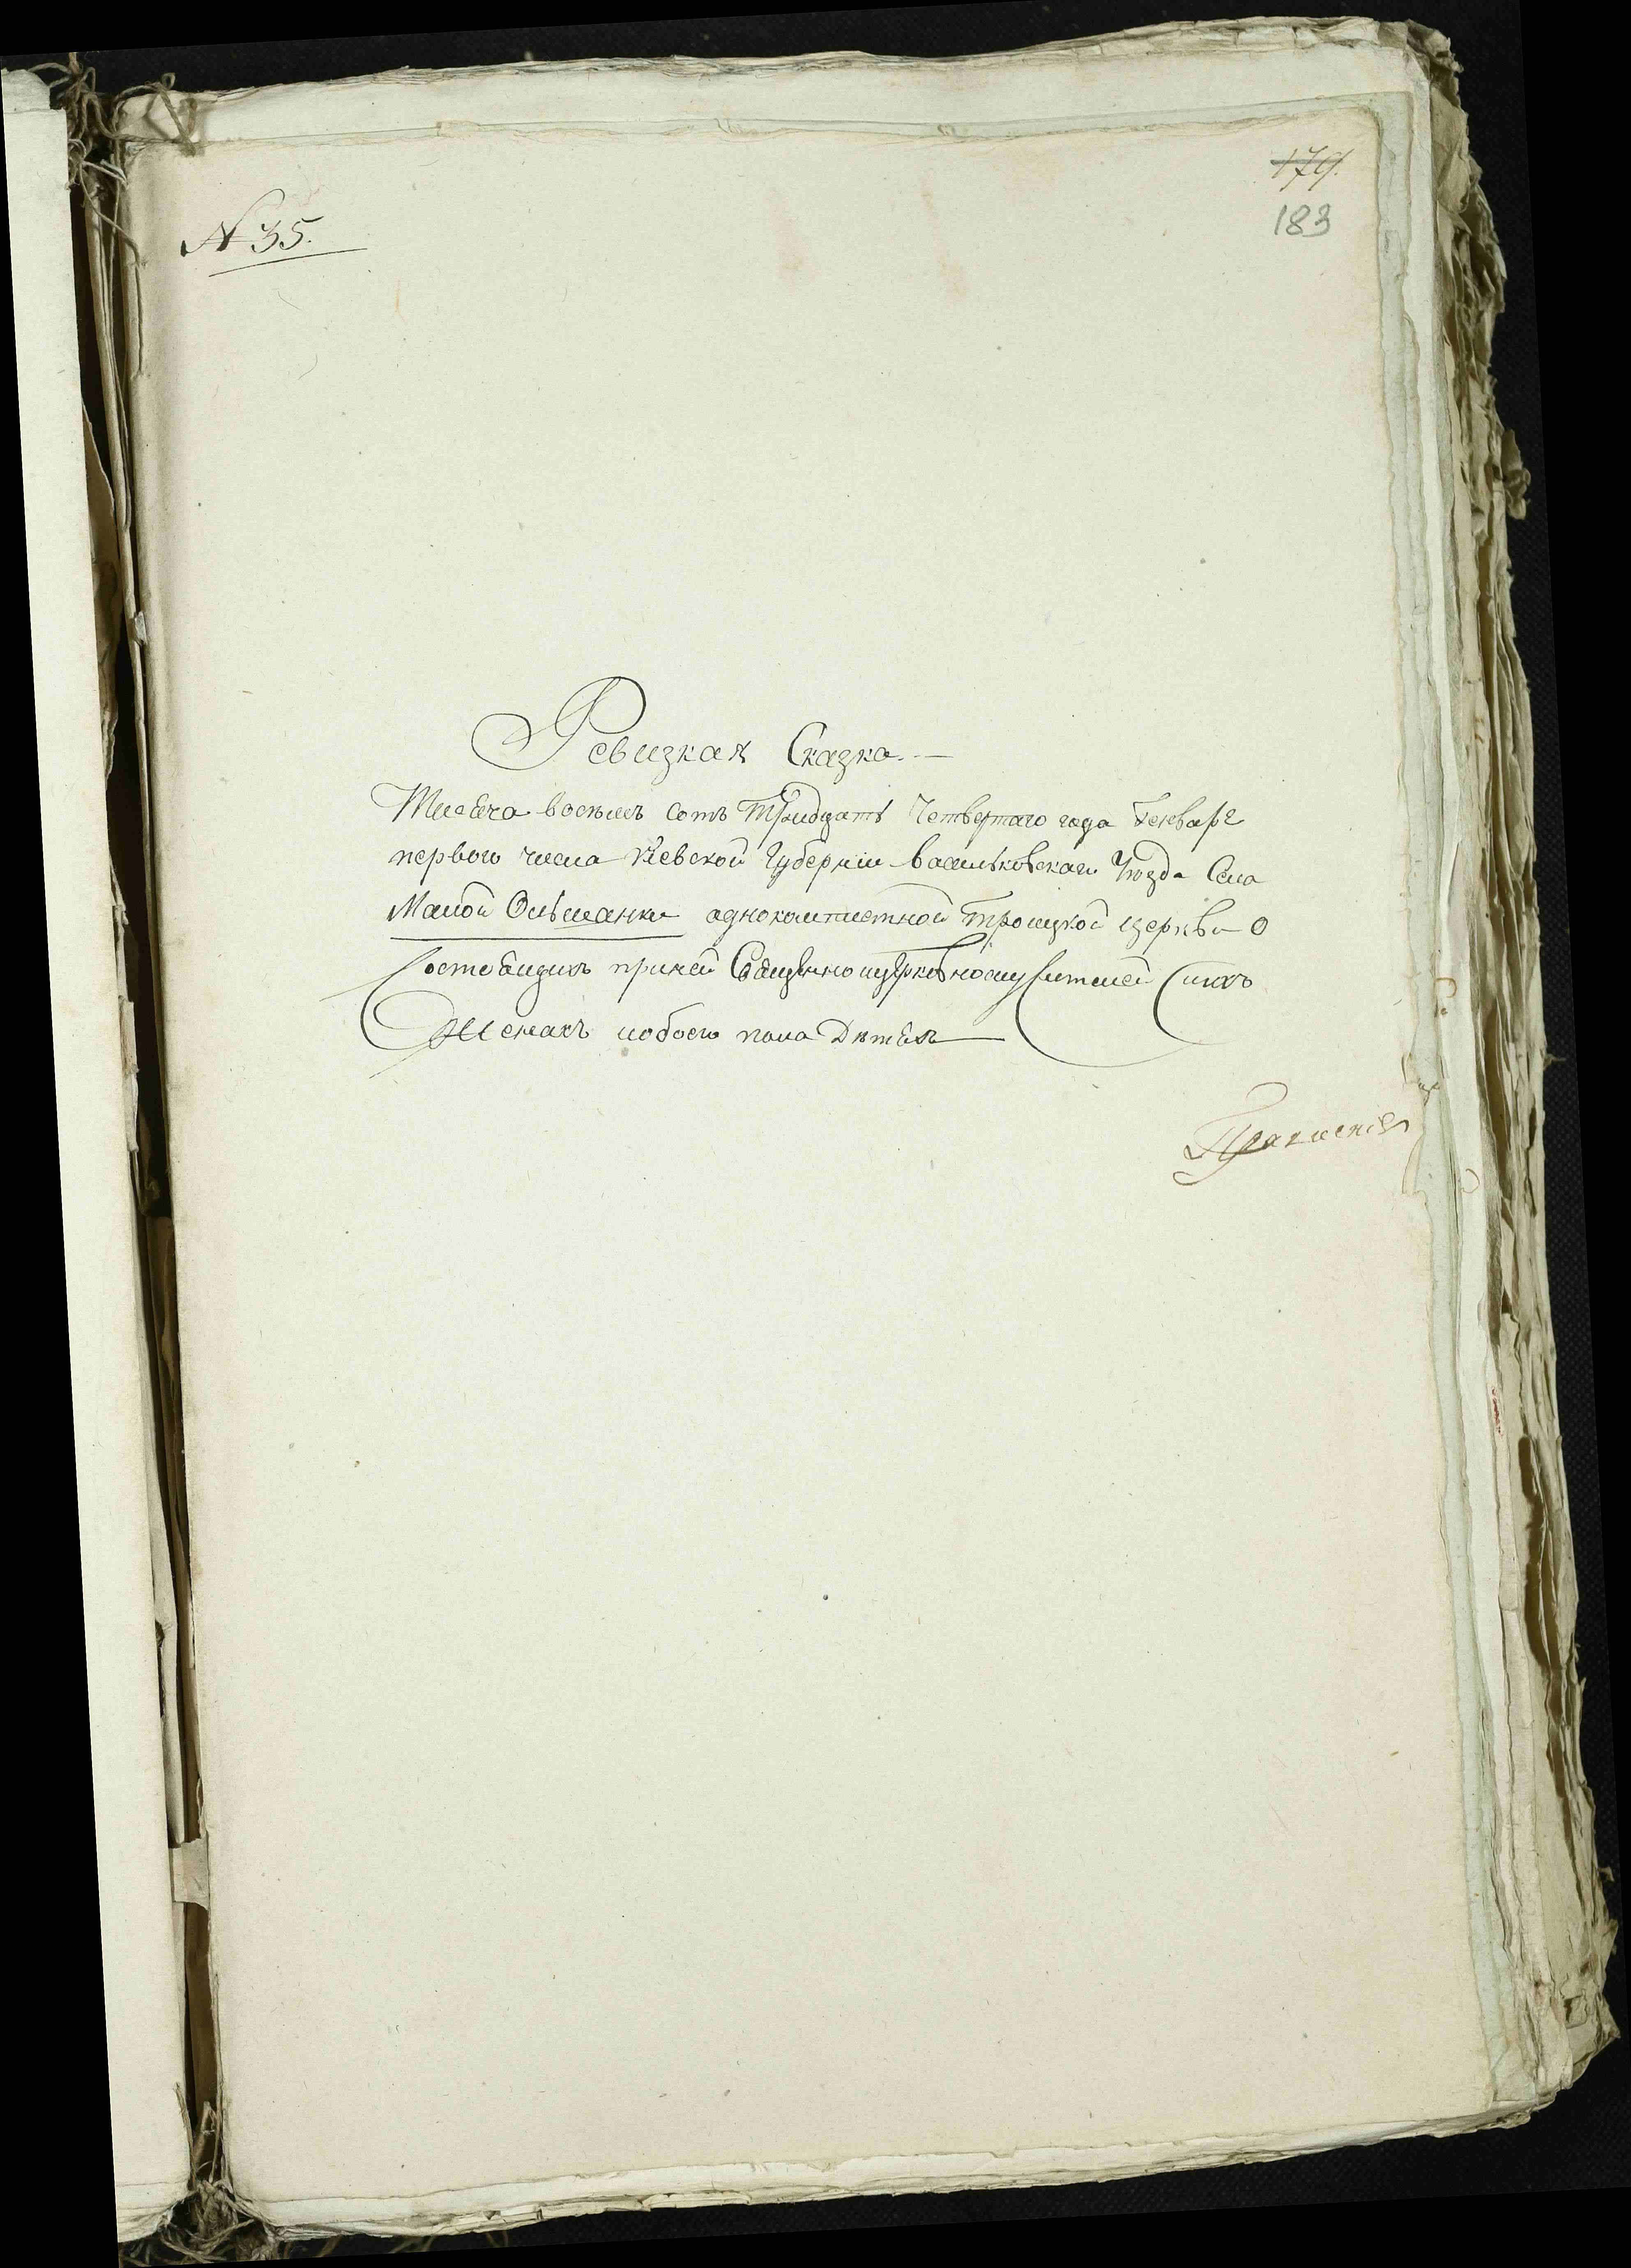 179.
183
N 35.
Ревизкая Сказка. —
Тисеча восемь сотъ Тридцать Четвертаго года Генваря
первого числа Кіевской Губерніи Васильковскаго Уѣзда Села
Малой Ольшанки однокомплетной Троицкой церкви О
Состоящихъ приней Священноцерковнослужителей Сихъ
Женахъ иобоего пола Дѣтехъ